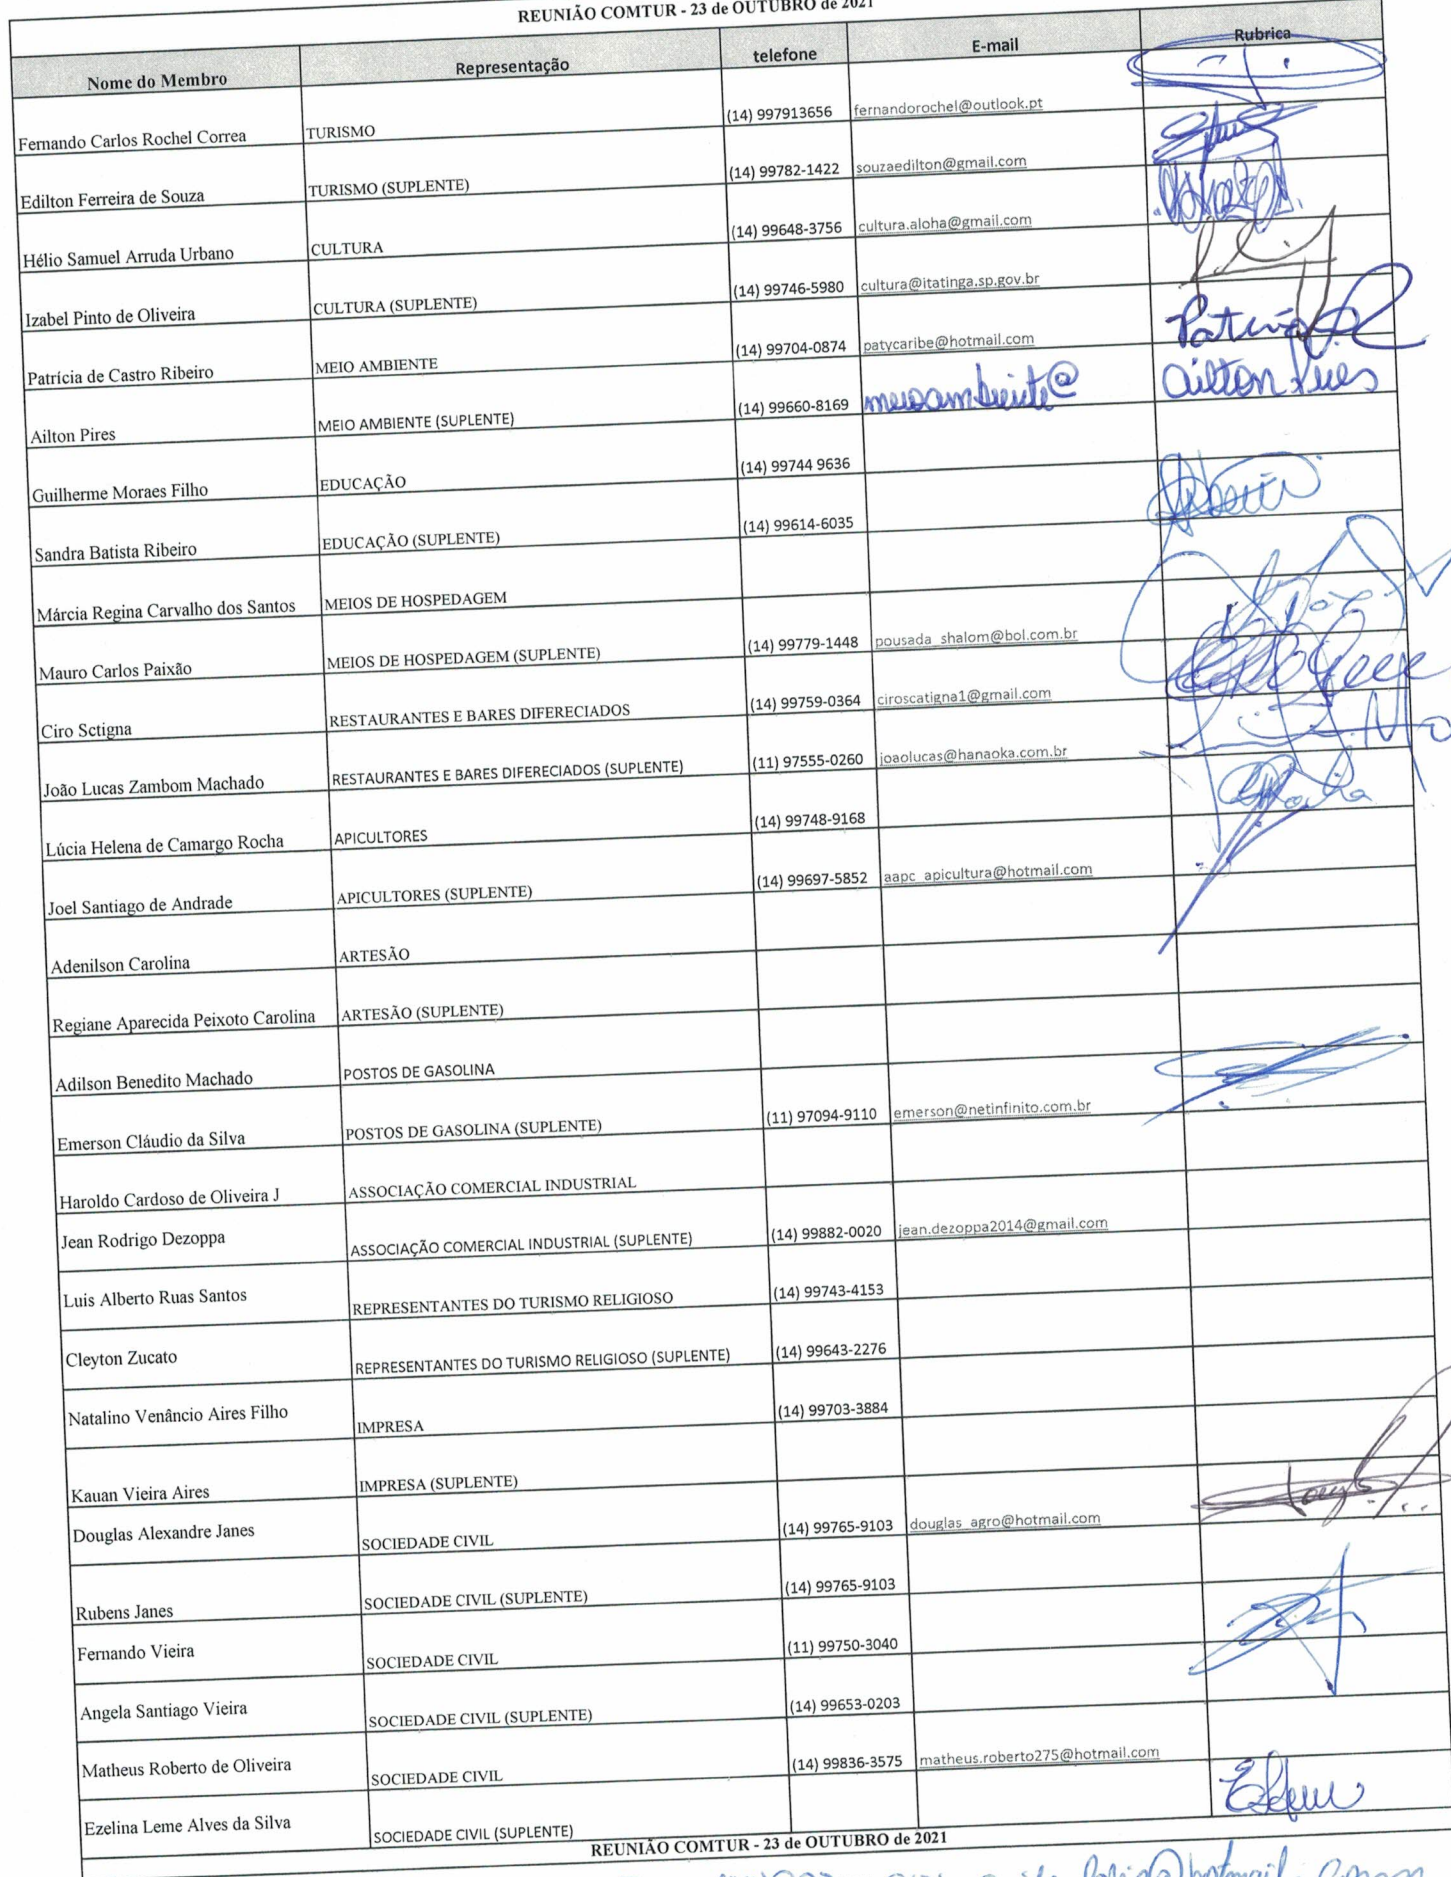 REUNIÃO COMTUR - 23 de OUTUBRO de 2021
Nome do Membro Representação telefone E-mail Rubrica
Fernando Carlos Rochel Correa TURISMO (14) 997913656 fernandorochel@outlook.pt
Edilton Ferreira de Souza TURISMO (SUPLENTE) (14) 99782-1422 souzaedilton@gmail.com
Hélio Samuel Arruda Urbano CULTURA (14) 99648-3756 cultura.aloha@gmail.com
Izabel Pinto de Oliveira CULTURA (SUPLENTE) (14) 99746-5980 cultura@itatinga.sp.gov.br
Patrícia de Castro Ribeiro MEIO AMBIENTE (14) 99704-0874 patycaribe@hotmail.com
Ailton Pires MEIO AMBIENTE (SUPLENTE) (14) 99660-8169 meioambiente@ Ailton Pires
Guilherme Moraes Filho EDUCAÇÃO (14) 99744 9636
Sandra Batista Ribeiro EDUCAÇÃO (SUPLENTE) (14) 99614-6035
Márcia Regina Carvalho dos Santos MEIOS DE HOSPEDAGEM
Mauro Carlos Paixão MEIOS DE HOSPEDAGEM (SUPLENTE) (14) 99779-1448 pousada_shalom@bol.com.br
Ciro Sctigna RESTAURANTES E BARES DIFERECIADOS (14) 99759-0364 ciroscatigna1@gmail.com
João Lucas Zambom Machado RESTAURANTES E BARES DIFERECIADOS (SUPLENTE) (11) 97555-0260 joaolucas@hanaoka.com.br
Lúcia Helena de Camargo Rocha APICULTORES (14) 99748-9168
Joel Santiago de Andrade APICULTORES (SUPLENTE) (14) 99697-5852 aapc_apicultura@hotmail.com
Adenilson Carolina ARTESÃO
Regiane Aparecida Peixoto Carolina ARTESÃO (SUPLENTE)
Adilson Benedito Machado POSTOS DE GASOLINA
Emerson Cláudio da Silva POSTOS DE GASOLINA (SUPLENTE) (11) 97094-9110 emerson@netinfinito.com.br
Haroldo Cardoso de Oliveira J ASSOCIAÇÃO COMERCIAL INDUSTRIAL
Jean Rodrigo Dezoppa ASSOCIAÇÃO COMERCIAL INDUSTRIAL (SUPLENTE) (14) 99882-0020 jean.dezoppa2014@gmail.com
Luis Alberto Ruas Santos REPRESENTANTES DO TURISMO RELIGIOSO (14) 99743-4153
Cleyton Zucato REPRESENTANTES DO TURISMO RELIGIOSO (SUPLENTE) (14) 99643-2276
Natalino Venâncio Aires Filho IMPRESA (14) 99703-3884
Kauan Vieira Aires IMPRESA (SUPLENTE)
Douglas Alexandre Janes SOCIEDADE CIVIL (14) 99765-9103 douglas_agro@hotmail.com
Rubens Janes SOCIEDADE CIVIL (SUPLENTE) (14) 99765-9103
Fernando Vieira SOCIEDADE CIVIL (11) 99750-3040
Angela Santiago Vieira SOCIEDADE CIVIL (SUPLENTE) (14) 99653-0203
Matheus Roberto de Oliveira SOCIEDADE CIVIL (14) 99836-3575 matheus.roberto275@hotmail.com
Ezelina Leme Alves da Silva SOCIEDADE CIVIL (SUPLENTE)
REUNIÃO COMTUR - 23 de OUTUBRO de 2021